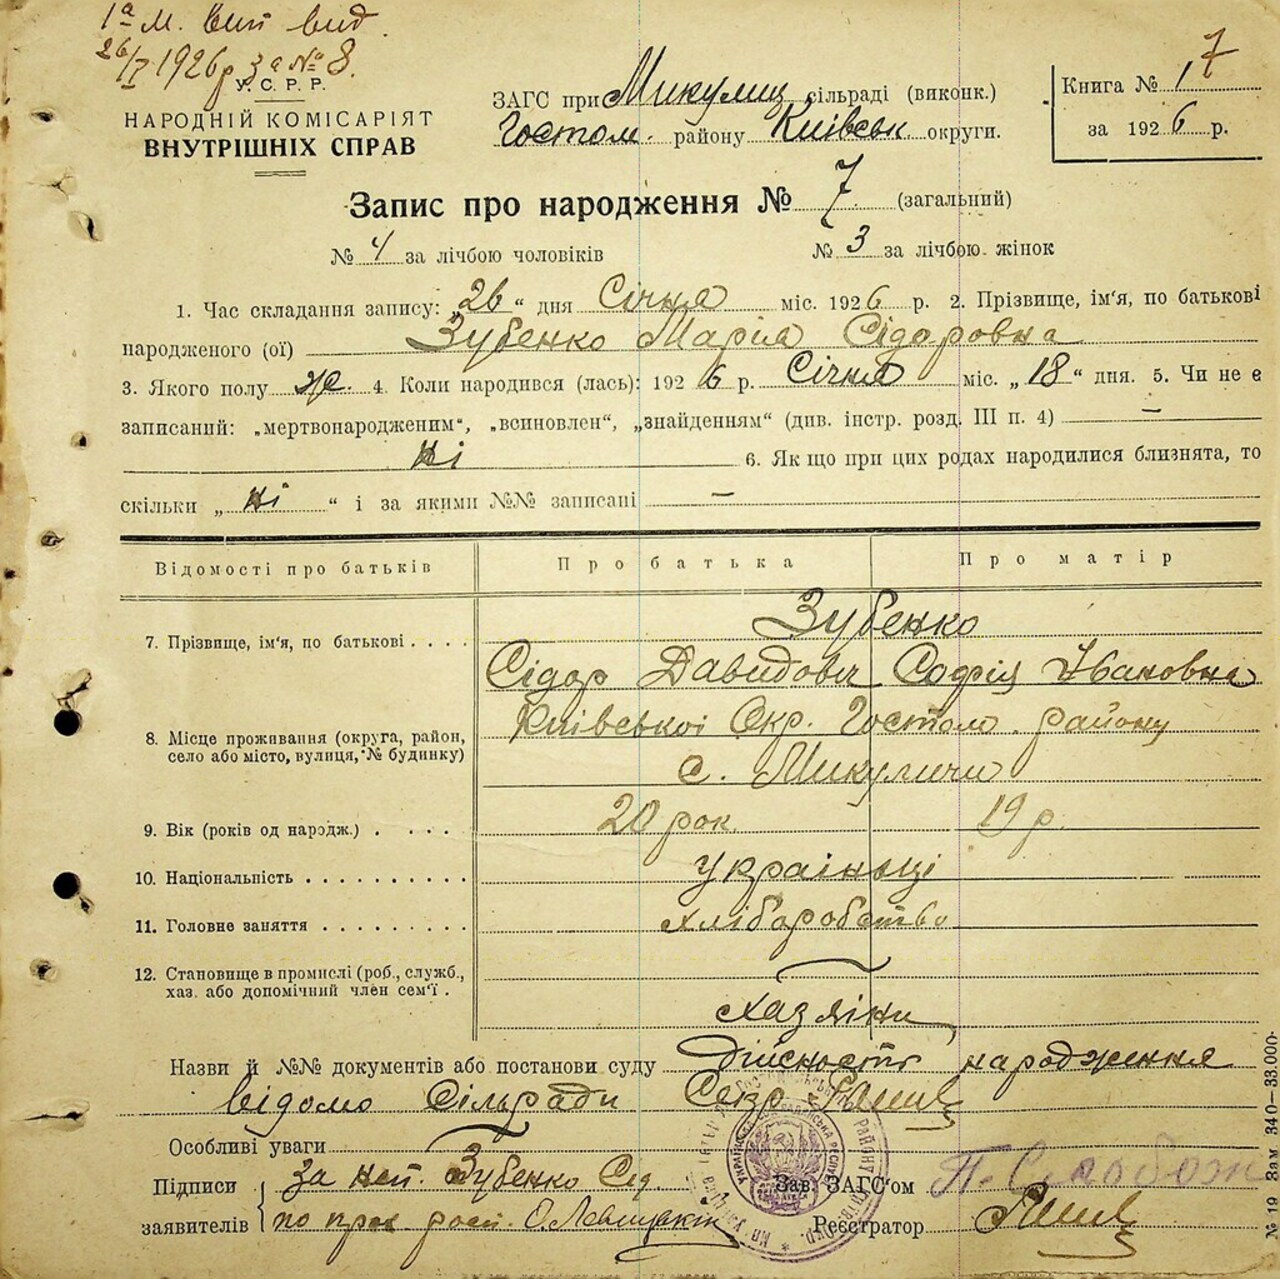 1ª м. вип вид.
26/I 1926 р за № 8.
У. С. Р. Р.
НАРОДНІЙ КОМІСАРІЯТ
ВНУТРІШНІХ СПРАВ
ЗАГС при Микулиц сільраді (виконк.)
Гостом. району Київськ округи.
Книга № 1 7
за 1926 р.
Запис про народження № 7 (загальний)
№ 4 за лічбою чоловіків № 3 за лічбою жінок
1. Час складання запису: „26“ дня Січня міс. 1926 р. 2. Прізвище, ім'я, по батькові
народженого (ої) Зубенко Марія Сідоровна
3. Якого полу ж. 4. Коли народився (лась): 1926 р. Січня міс. „18“ дня. 5. Чи не є
записаний: „мертвонародженим“, „всиновлен“, „знайденням“ (див. інстр. розд. III п. 4) —
ні 6. Як що при цих родах народилися близнята, то
скільки „ні“ і за якими №№ записані —
Відомості про батьків Про батька Про матір
7. Прізвище, ім'я, по батькові . . . . Зубенко
Сідор Давидович Софія Івановна
8. Місце проживання (округа, район, село або місто, вулиця, № будинку) Київської Окр. Гостом. району
с. Микуличи
9. Вік (років од народж.) . . . . . 20 рок. 19 р.
10. Національність . . . . . . . . . . українці
11. Головне заняття . . . . . . . . . хліборобство
12. Становище в промислі (роб., служб.,
хаз. або допомічний член сем'ї . хазяїни
Назви й №№ документів або постанови суду Дійсность народження
відомо Сільради Секр.
Особливі уваги
Підписи за неп. Зубенко Сід. Зав. ЗАГС'ом
заявителів по прох. росп. О. Левицький Реєстратор
№ 19 Зам 340—33.000